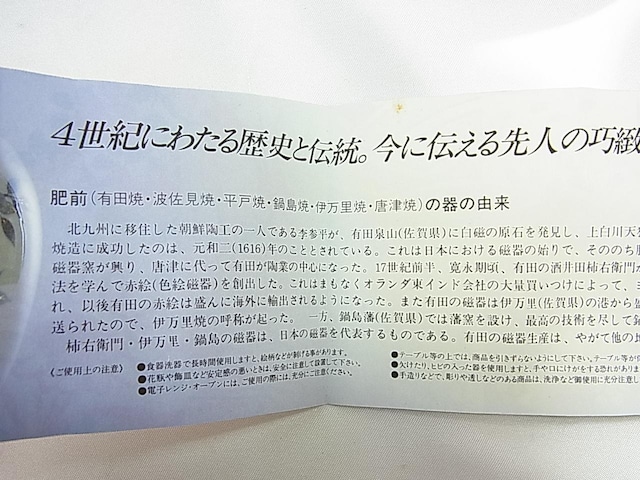 4世紀にわたる歴史と伝統。今に伝える先人の巧緻
肥前(有田焼・波佐見焼・平戸焼・鍋島焼・伊万里焼・唐津焼)の器の由来
北九州に移住した朝鮮陶工の一人である李参平が、有田泉山(佐賀県)に白磁の原石を発見し、上白川天
焼造に成功したのは、元和二(1616)年のこととされている。これは日本における磁器の始りで、そののち
磁器窯が興り、唐津に代って有田が陶業の中心になった。17世紀前半、寛永期頃、有田の酒井田柿右衛門
法を学んで赤絵(色絵磁器)を創出した。これはまもなくオランダ東インド会社の大量買いつけによって、ヨ
れ、以後有田の赤絵は盛んに海外に輸出されるようになった。また有田の磁器は伊万里(佐賀県)の港から
送られたので、伊万里焼の呼称が起った。一方、鍋島藩(佐賀県)では藩窯を設け、最高の技術を尽して
柿右衛門・伊万里・鍋島の磁器は、日本の磁器を代表するものである。有田の磁器生産は、やがて他の
〈ご使用上の注意〉
●食器洗器で長時間使用しますと、絵柄などが剥げる事があります。
●花瓶や飾皿など安定感の悪いときは、安全に注意して設置して下さい。
●電子レンジ・オーブンには、ご使用の際には、充分にご注意ください。
●テーブル等の上では、商品を引きずらないようにして下さい。テーブル等が
●欠けたり、ヒビの入った器を使用しますと、手や口にけがをする恐れがありま
●手造りなどで、彫りや透しなどのある商品は、洗浄など御使用に充分注意